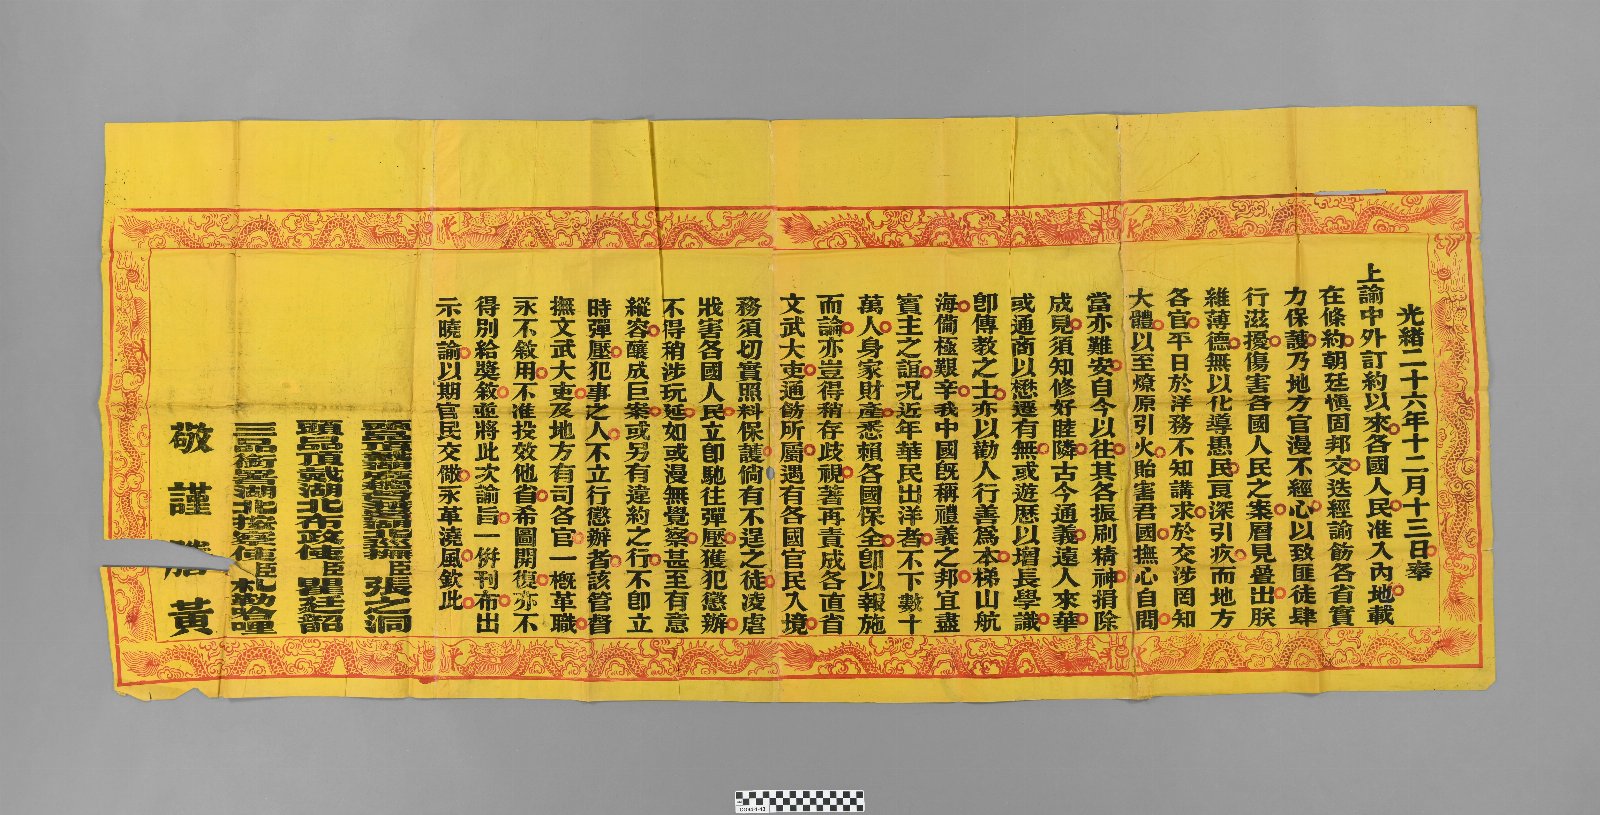 光緒二十六年十二月十三日奉
上諭中外訂約以來各國人民准入內地載
在條約朝廷慎固邦交迭經諭飭各省實
力保護乃地方官漫不經心以致匪徒肆
行滋擾傷害各國人民之案層見疊出朕
維薄德無以化導愚民良深引疚而地方
各官平日於洋務不知講求於交涉罔知
大體以至燎原引火貽害君國撫心自問
當亦難安自今以往其各振刷精神捐除
成見須知修好睦隣古今通義遠人來華
或通商以懋遷有無或遊歷以增長學識
卽傳教之士亦以勸人行善爲本梯山航
海備極艱辛我中國旣稱禮義之邦宜盡
賓主之誼况近年華民出洋者不下數十
萬人身家財產悉賴各國保全卽以報施
而論亦豈得稍存歧視著再責成各直省
文武大吏通飭所屬遇有各國官民入境
務須切實照料保護倘有不逞之徒凌虐
戕害各國人民立卽馳往彈壓獲犯懲辦
不得稍涉玩延如或漫無覺察甚至有意
縱容釀成巨案或另有違約之行不卽立
時彈壓犯事之人不立行懲辦者該管督
撫文武大吏及地方有司各官一概革職
永不敘用不准投效他省希圖開復亦不
得別給獎敘並將此次諭旨一倂刊布出
示曉諭以期官民交儆永革澆風欽此
張之洞
頭品頂戴湖北布政使臣瞿廷韶
三品銜署湖北按察使臣札勒哈哩
敬謹謄黃